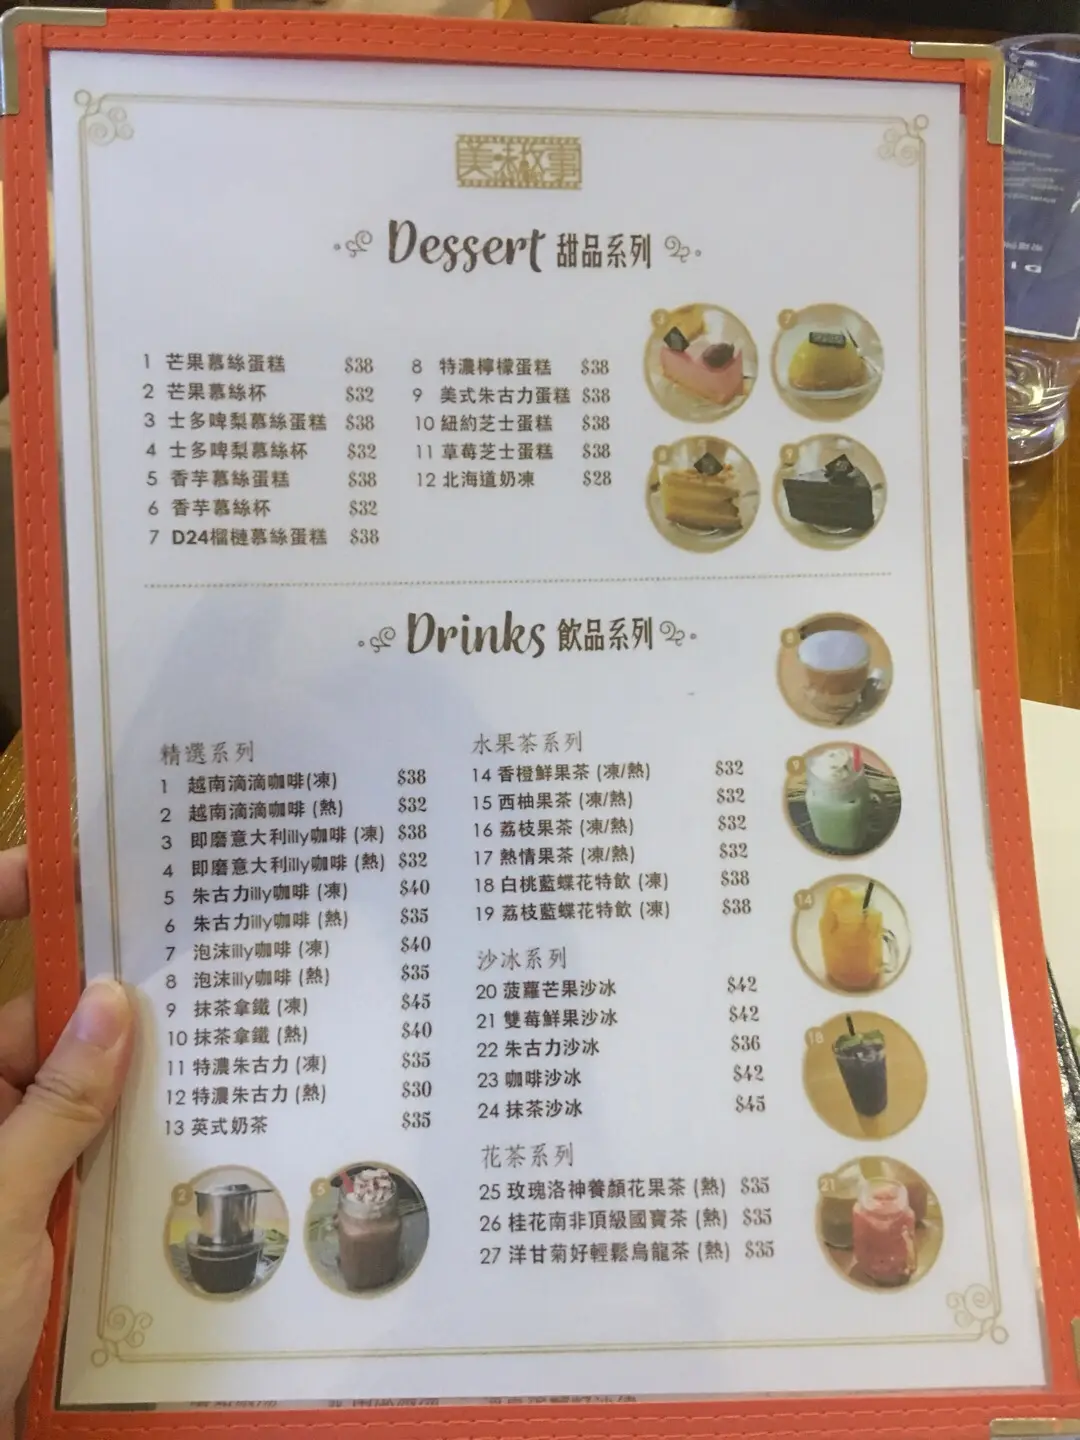 美味故事
Dessert 甜品系列
1 芒果慕絲蛋糕 $38
2 芒果慕絲杯 $32
3 士多啤梨慕絲蛋糕 $38
4 士多啤梨慕絲杯 $32
5 香芋慕絲蛋糕 $38
6 香芋慕絲杯 $32
7 D24榴槤慕絲蛋糕 $38
8 特濃檸檬蛋糕 $38
9 美式朱古力蛋糕 $38
10 紐約芝士蛋糕 $38
11 草莓芝士蛋糕 $38
12 北海道奶凍 $28
Drinks 飲品系列
精選系列
1 越南滴滴咖啡(凍) $38
2 越南滴滴咖啡 (熱) $32
3 即磨意大利illy咖啡 (凍) $38
4 即磨意大利illy咖啡 (熱) $32
5 朱古力illy咖啡 (凍) $40
6 朱古力illy咖啡 (熱) $35
7 泡沫illy咖啡 (凍) $40
8 泡沫illy咖啡 (熱) $35
9 抹茶拿鐵 (凍) $45
10 抹茶拿鐵 (熱) $40
11 特濃朱古力 (凍) $35
12 特濃朱古力 (熱) $30
13 英式奶茶 $35
水果茶系列
14 香橙鮮果茶 (凍/熱) $32
15 西柚果茶 (凍/熱) $32
16 荔枝果茶 (凍/熱) $32
17 熱情果茶 (凍/熱) $32
18 白桃藍蝶花特飲 (凍) $38
19 荔枝藍蝶花特飲 (凍) $38
沙冰系列
20 菠蘿芒果沙冰 $42
21 雙莓鮮果沙冰 $42
22 朱古力沙冰 $36
23 咖啡沙冰 $42
24 抹茶沙冰 $45
花茶系列
25 玫瑰洛神養顏花果茶 (熱) $35
26 桂花南非頂級國寶茶 (熱) $35
27 洋甘菊好輕鬆烏龍茶 (熱) $35